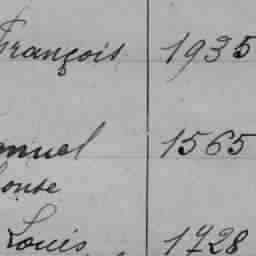 François 1935
muel 1565
Louis 1728